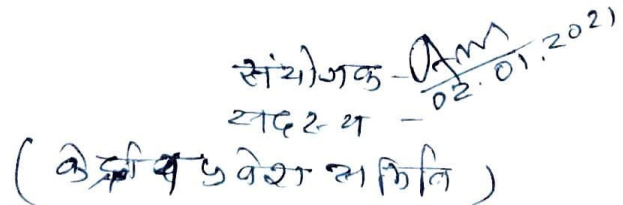 संयोजक -
02.01.2021
सदस्य -
(केन्द्रीय प्रवेश समिति)